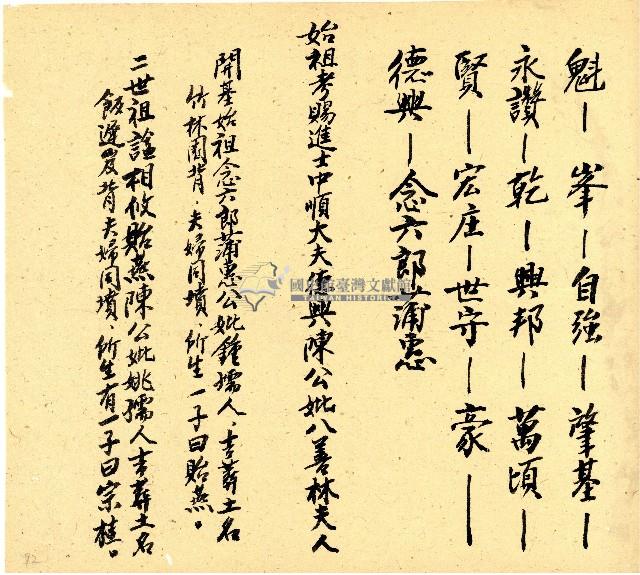 魁－峯－自強－肇基－
永讚－乾－興邦－萬頃－
賢－宏庄－世守－豪－
德興－念六郎蒲惠
始祖考賜進士中順大夫德興陳公妣八善林夫人
開基始祖念六郎蒲惠公妣鍾孺人、吉葬土名
竹林園背、夫婦同墳、所生一子曰貽燕。
二世祖諡相攸貽燕陳公妣姚孺人吉葬土名
飯遲崀背夫婦同墳、所生有一子曰宗桂。
國史館臺灣文獻館
TAIWAN HISTORICA
92